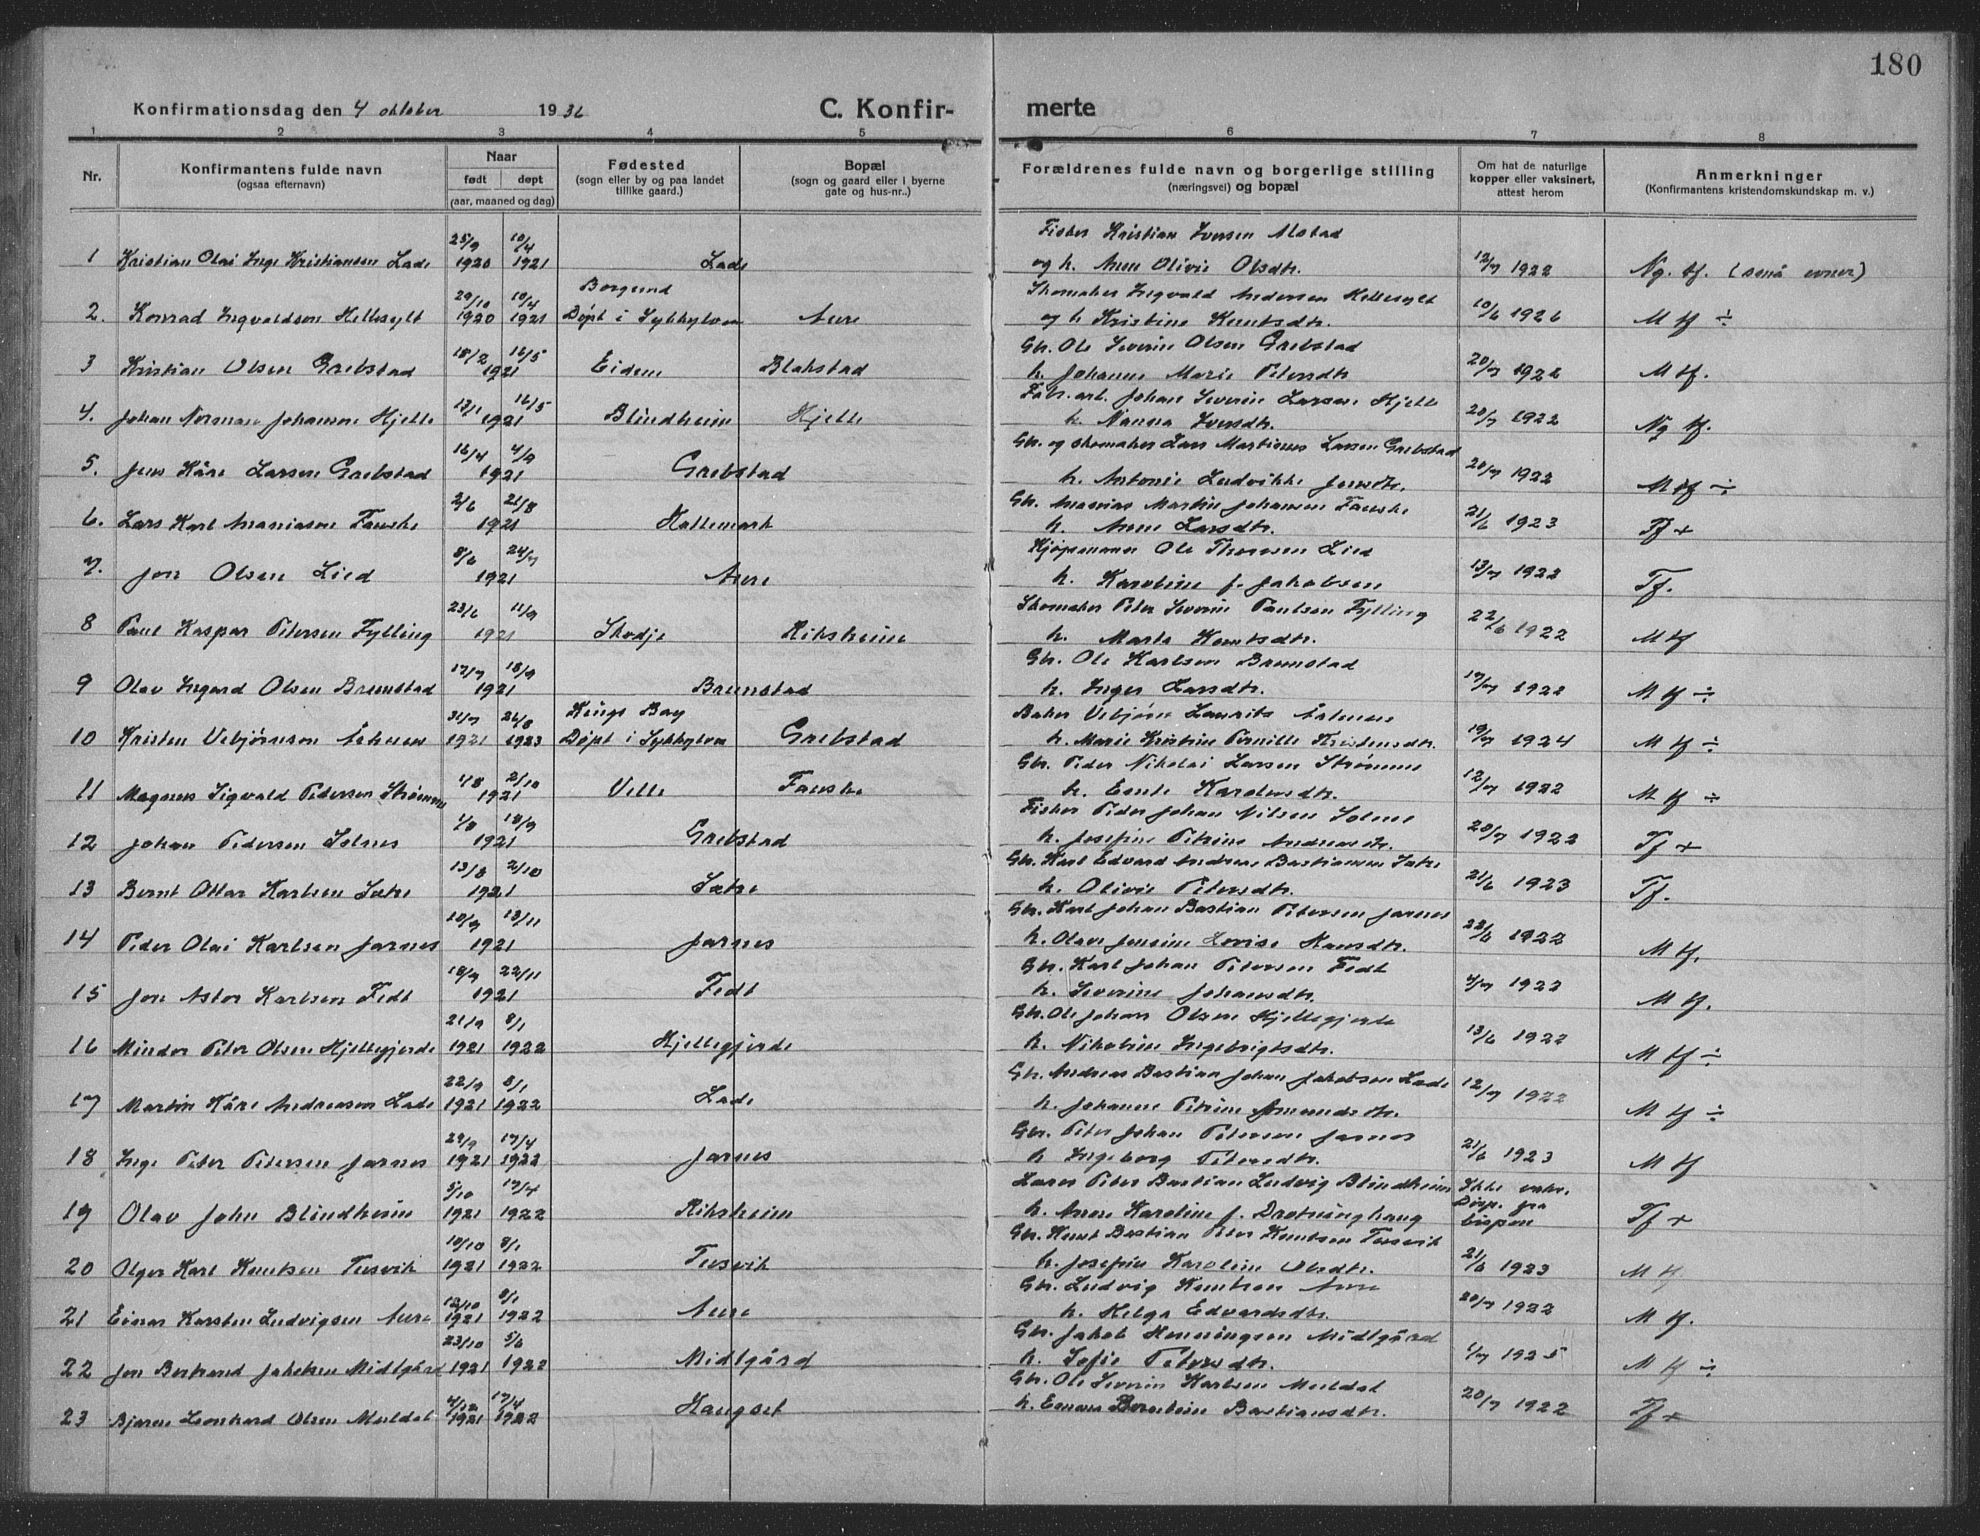 180
Konfirmationsdag den 4 oktober 1936
C. Konfir-
merte
1 2 3 4 5 6 7 8
Nr.
Konfirmantens fulde navn
(ogsaa efternavn)
Naar
født døpt
(aar, maaned og dag)
Fødested
(sogn eller by og paa landet
tillike gaard.)
Bopæl
(sogn og gaard eller i byerne
gate og hus-nr..)
Forældrenes fulde navn og borgerlige stilling
(næringsvei) og bopæl
Om hat de naturlige
kopper eller vaksinert,
attest herom
Anmerkninger
(Konfirmantens kristendomskundskap m. v.)
Fisker Kristian Iversen Alstad
1 Kristian Olai Inge Kristiansen Lade 25/9 1920 10/4 1921 Lade og h. Anne Olivie Olsdtr. 12/7 1922 Ng. tf. (små evner)
Borgund Skomaker Ingvald Andersen Hellesylt
2. Konrad Ingvaldson Hellesylt 29/10 1920 10/4 1921 Døpt i Sykkylven Aure og h Kristine Knutsdtr. 10/6 1926 M tf ÷
Gbr. Ole Severin Olsen Grebstad
3 Kristian Olsen Grebstad 18/2 16/5 1921 Eidem Blakstad h. Johanne Marie Petersdtr 20/7 1922 M tf.
Fabr. arb. Johan Severin Larsen Hjelle
4. Johan Norman Johansen Hjelle 13/1 16/5 1921 Blindheim Hjelle h. Nanna Iversdtr. 20/7 1922 Ng tf.
Gbr. og skomaker Lars Martinus Larsen Grebstad
5. Jens Kåre Larsen Grebstad 16/4 4/9 1921 Grebstad h. Antonie Ludvikke Jensdtr. 20/7 1922 M tf ÷
Gbr. Ananias Martin Johansen Fauske
6. Lars Karl Ananiasen Fauske 2/6 21/8 1921 Hattemark h. Anne Larsdtr. 21/6 1923 Tf +
Kjøpmann Ole Thoresen Lied
7. Jon Olsen Lied 8/6 24/7 1921 Aure h. Karoline f. Jakobsen 13/7 1922 Tf.
Skomaker Peter Severin Paulsen Fylling
8 Paul Kaspar Petersen Fylling 23/6 11/9 1921 Skodje Riksheim h. Marte Knutsdtr. 22/6 1922 M tf
Gbr. Ole Karlsen Brunstad
9 Olav Ingard Olsen Brunstad 17/7 18/9 1921 Brunstad h. Inger Larsdtr. 17/7 1922 M tf ÷
Kings Bay Baker Vebjørn Laurits
10 Kristen Vebjørnson 31/7 1921 26/8 1923 Døpt i Sykkylven Grebstad h. Marie Kristine Pernille Kristensdtr. 19/7 1924 M tf ÷
Gbr. Peder Nikolai Larsen Strømme
11 Magnus Sigvald Pedersen Strømme 4/8 2/10 1921 Velle Fauske h. Emte Karolusdtr. 12/7 1922 M tf ÷
Fisker Peder Johan Nilsen Solnes
12 Johan Pedersen Solnes 4/8 18/9 1921 Grebstad h. Josefine Petrine Andreasdtr. 20/7 1922 Tf +
Gbr. Karl Edvard Andreas Bastiansen Sætre
13 Bernt Ottar Karlsen Sætre 13/8 2/10 1921 Sætre h. Olivie Petersdtr. 21/6 1923 Tf.
Gbr. Karl Johan Bastian Petersen Jarnes
14 Peder Olai Karlsen Jarnes 10/9 13/11 1921 Jarnes h. Olave Jensine Lovise Hansdtr. 22/6 1922 M tf.
Gbr. Karl Johan Petersen Fedt
15 Jon Astor Karlsen Fedt 18/9 22/11 1921 Fedt h. Severine Johansdtr. 4/7 1922 M tf.
Gbr. Ole Johan Olsen Hjellegjerde
16 Mindor Peter Olsen Hjellegjerde 21/9 1921 8/1 1922 Hjellegjerde h. Nikoline Ingebrigtsdtr. 13/6 1922 M tf ÷
Gbr. Andreas Bastian Johan Jakobsen Lade
17 Martin Kåre Andreasen Lade 22/9 1921 8/1 1922 Lade h. Johanne Petrine Amundsdtr. 12/7 1922 M tf ÷
Gbr. Peter Johan Petersen Jarnes
18 Inge Peter Petersen Jarnes 29/9 1921 17/4 1922 Jarnes h Ingeborg Petersdtr. 21/6 1923 M tf
Lærer Peter Bastian Ludvig Blindheim Ikke vaks.
19 Olav John Blindheim 5/10 1921 17/4 1922 Riksheim h. Anne Karoline f. Drotninghaug Disp. fra bispen Tf +
Gbr. Knut Bastian Peter Knutsen Tusvik
20 Olger Karl Knutsen Tusvik 10/10 1921 8/1 1922 Tusvik h. Josefine Karoline Olsdtr. 21/6 1923 M tf.
Gbr. Ludvig Knutsen Aure
21 Einar Karsten Ludvigsen Aure 12/10 1921 8/1 1922 Aure h. Helga Edvardsdtr. 20/7 1922 M tf.
Gbr. Jakob Henningsen Midtgård
22 Jon Bertrand Jakobsen Midtgård 23/10 1921 5/6 1922 Midtgård h. Sofie Petersdtr. 4/7 1925 M tf ÷
Gbr. Ole Severin Karlsen Meldal
23 Bjarne Leonhard Olsen Meldal 4/12 1921 17/4 1922 Haugset h. Emma Berntine Bastiansdtr. 20/7 1922 Tf +